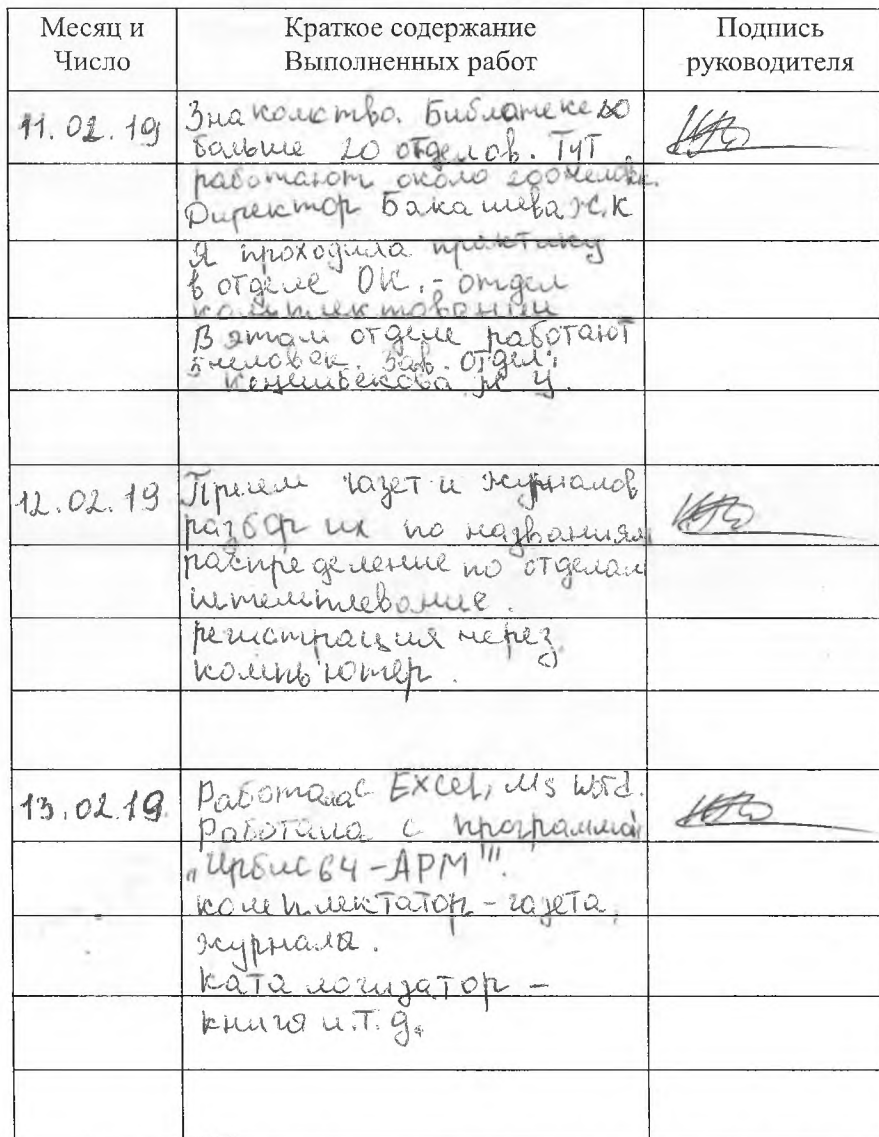 Месяц и Число
Краткое содержание Выполненных работ
Подпись руководителя
11.02.19
Знакомство. Библатеке
больше 20 отделов. Тут
работают около 200 человек.
Директор Бакашева Ж.К
Я проходила практику
в отделе ОК. - отдел
комплектовании
В этом отделе работают
5 человек. Зав. отдел:
12.02.19
Прием газет и журналов
разбор их по названиям
распределение по отделам
штемплевание.
регистрация через
компьютер.
13.02.19
Работала с Excel, Ms Word.
Работала с программой
„Ирбис 64-АРМ"".
комплектатор - газета,
журнала.
каталогизатор -
книга и.т.д.